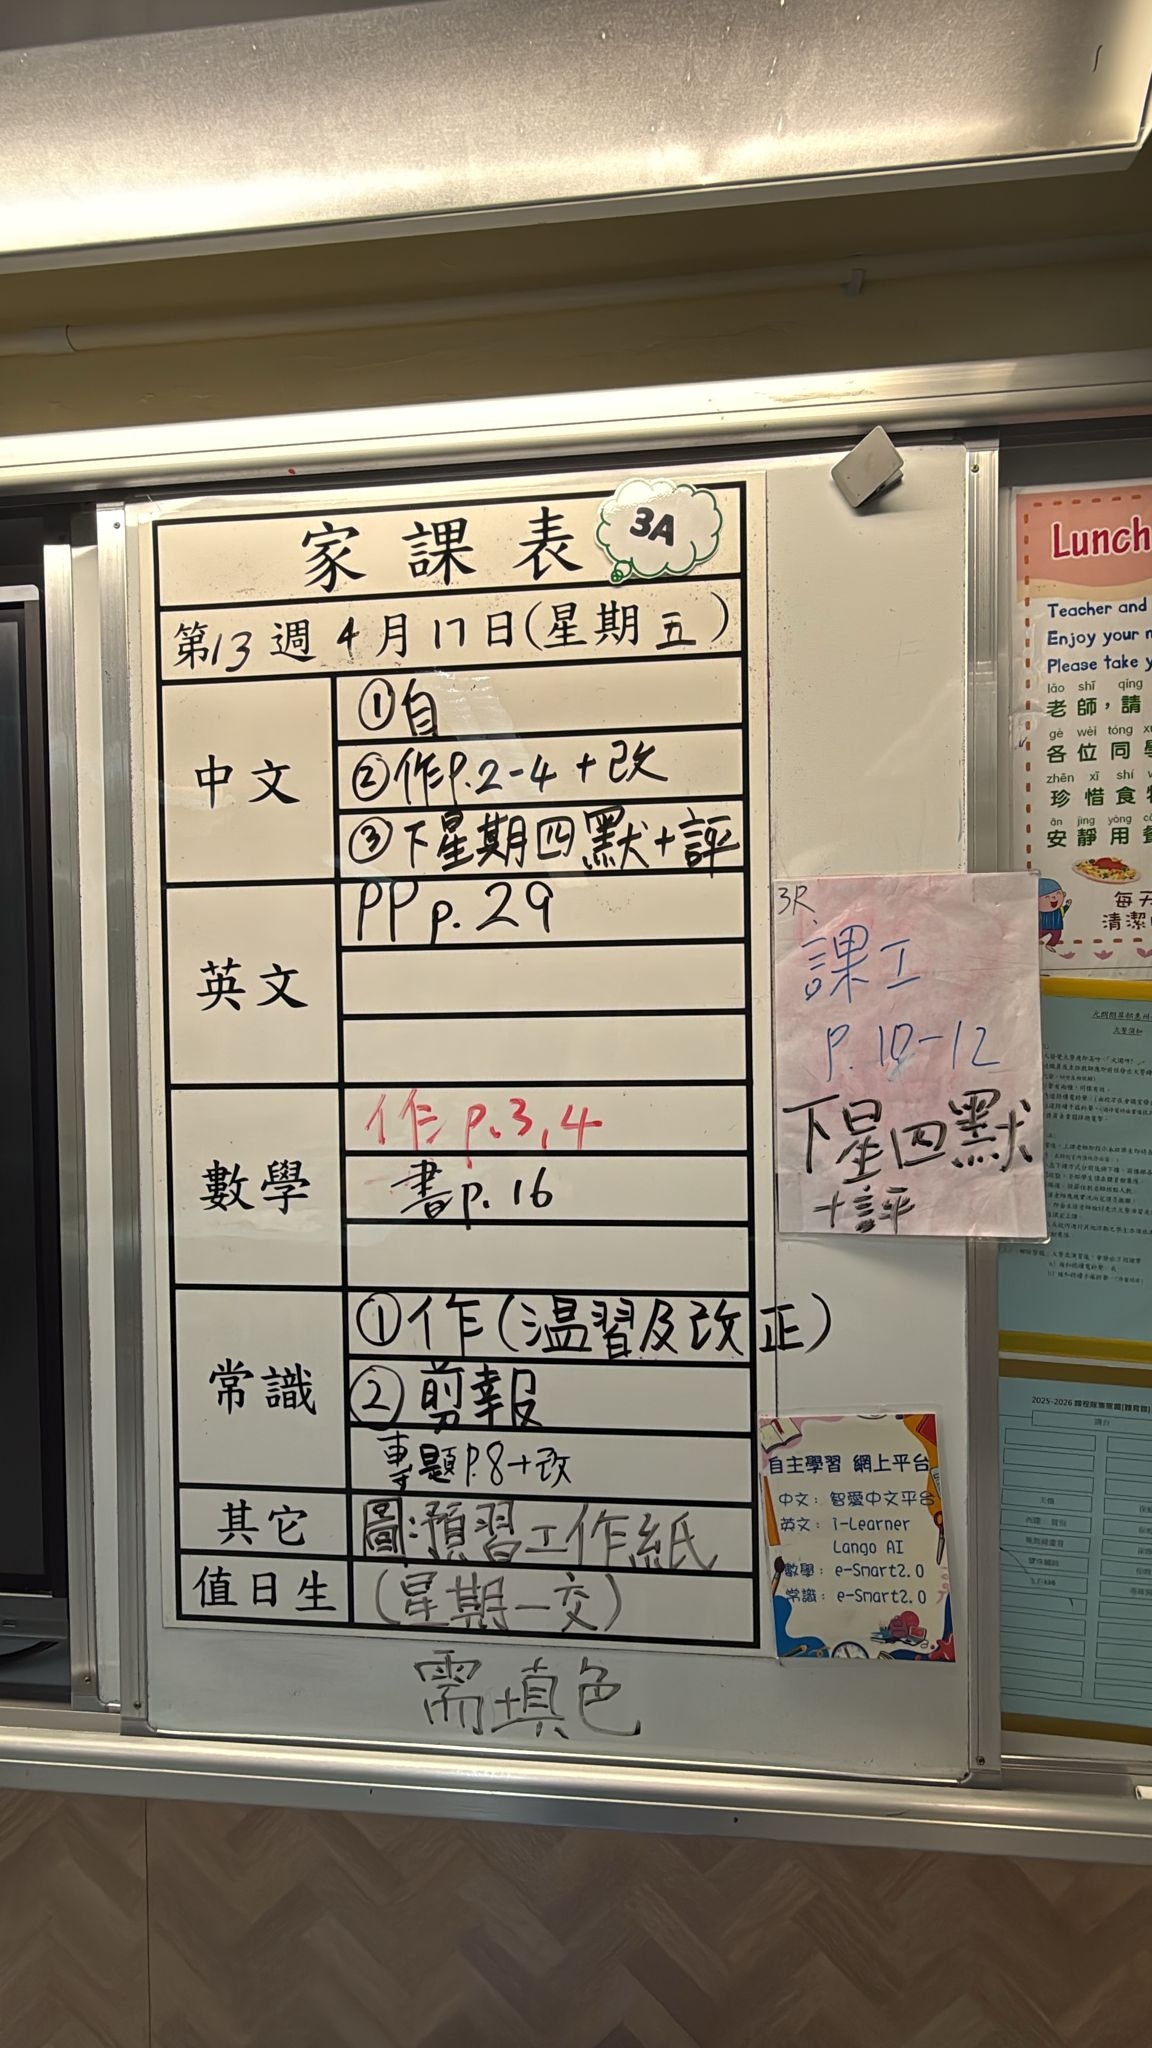 家課表
3A
第13週4月17日(星期五)
中文
①自
②作P.2-4+改
③下星期四默+評
英文
PP p.29
數學
作 p.3,4
書p.16
常識
①作(溫習及改正)
②剪報
專題P.8+改
其它
圖:預習工作紙
值日生
(星期一交)
需填色
3R
課工
P.10-12
下星四默
+評
自主學習 網上平台
中文:智愛中文平台
英文:i-Learner
Lango AI
數學:e-Smart2.0
常識:e-Smart2.0
Lunch
Teacher and
Enjoy your
Please take
lǎo shī qǐng
老師,請
gè wèi tóng
各位同
zhēn xī shí
珍惜食
ān jìng yòng
安靜用
每天
清潔
2025-2026